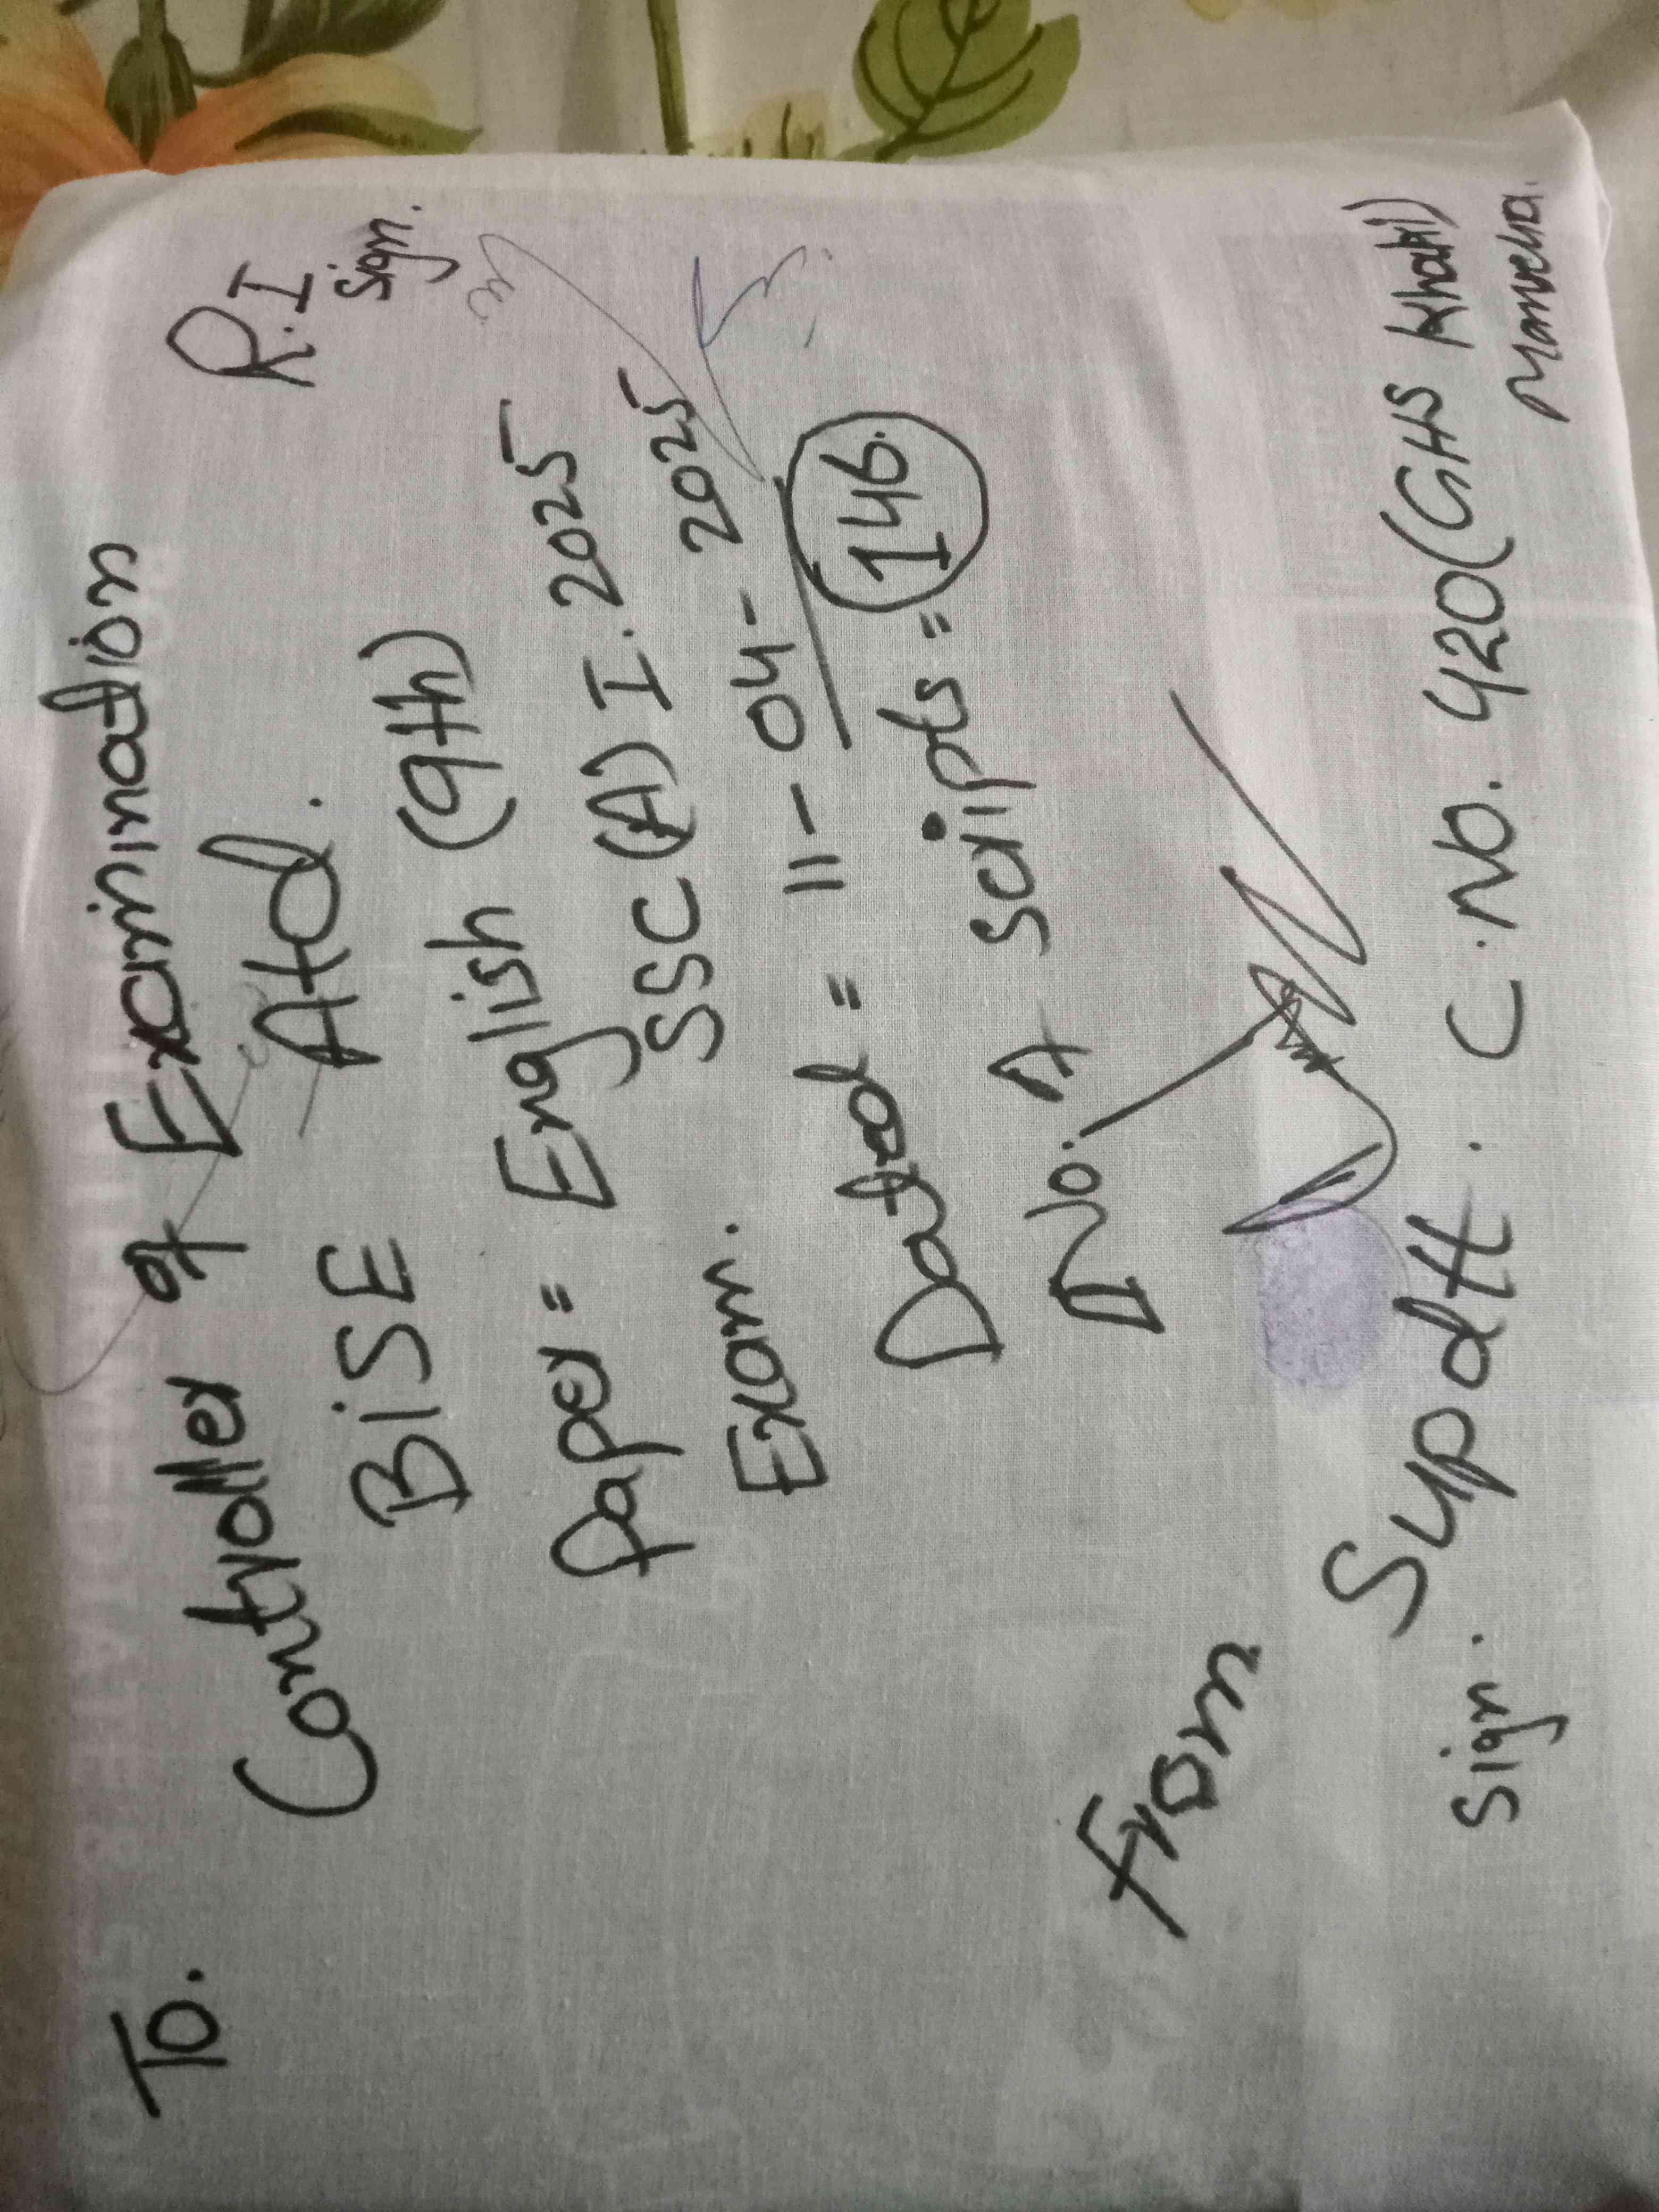 To.
Controller of Examination
BiSE Atd.
R.I
Sign.
Paper = English (9th)
Exam. SSC (A) I. 2025
Dated = 11-04-2025
No. of scripts = 146.
From
Supdtt. C.No. 420 (GHS Khaki)
Sign.